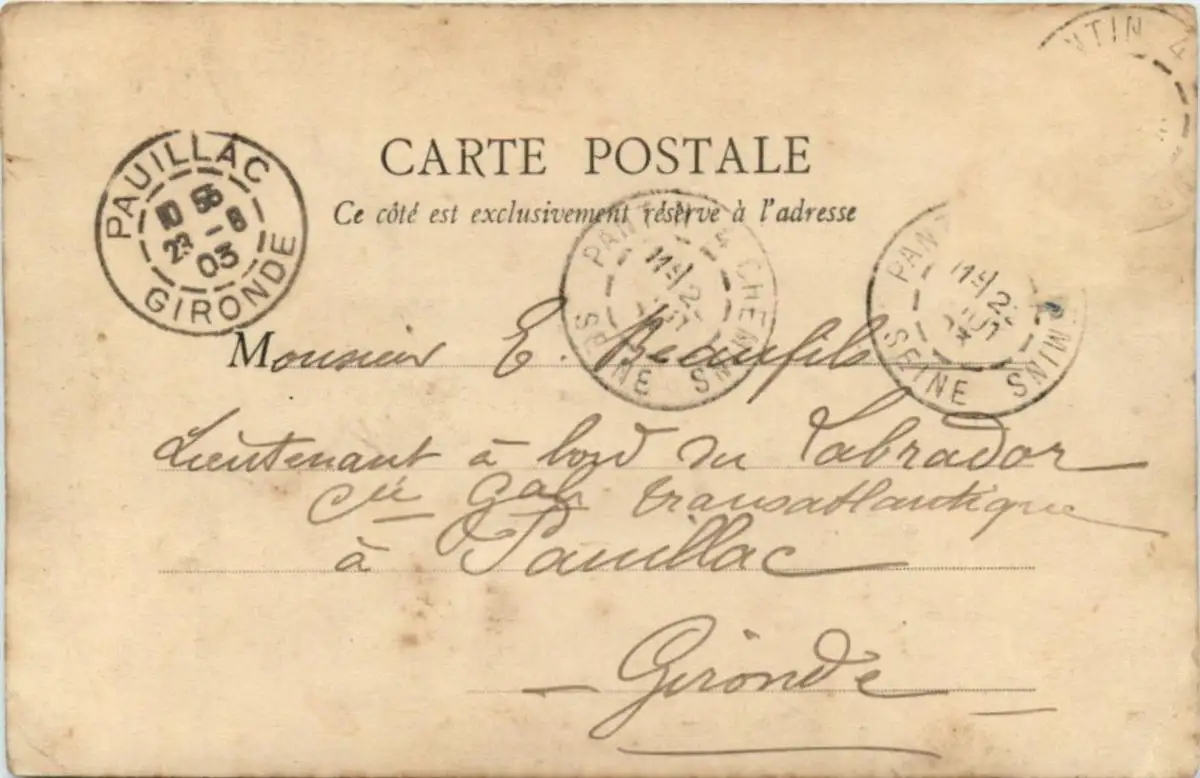 NTIN 4
CARTE POSTALE
Ce côté est exclusivement réservé à l'adresse
PAUILLAC
10 55
23 - 8
03
GIRONDE
PANTIN 4 CHEMINS
SEINE
PANT MINS
SEINE
Monsieur E. Beaufils
Lieutenant à bord du Labrador
Cie Gale transatlantique
à Pauillac
Gironde